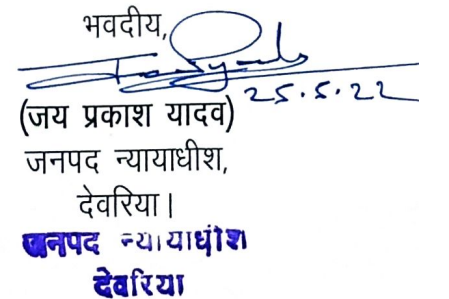 भवदीय,
25.5.22
(जय प्रकाश यादव)
जनपद न्यायाधीश,
देवरिया।
जनपद न्यायाधीश
देवरिया